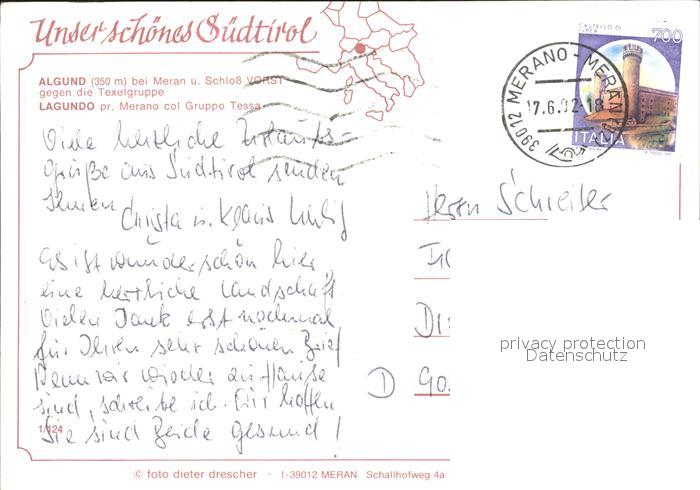 Unser schönes Südtirol
ALGUND (350 m) bei Meran u. Schloß VORST
gegen die Texelgruppe
LAGUNDO pr. Merano col Gruppo Tessa
CASTELLO DI
IVREA
700
ITALIA
39012 MERANO - MERAN
17.6.92-18
Viele herzliche Urlaubs-
grüße aus Südtirol senden
Ihnen Christa u. Klaus
Es ist wunderschön hier,
eine herrliche Landschaft
Vielen Dank erst nochmal
für Ihren sehr schönen Brief
Wenn wir wieder zu Hause
sind, schreibe ich. Wir hoffen
Sie sind beide gesund!
Herrn Schreiber
D
privacy protection
Datenschutz
1/124
© foto dieter drescher · I-39012 MERAN Schallhofweg 4a